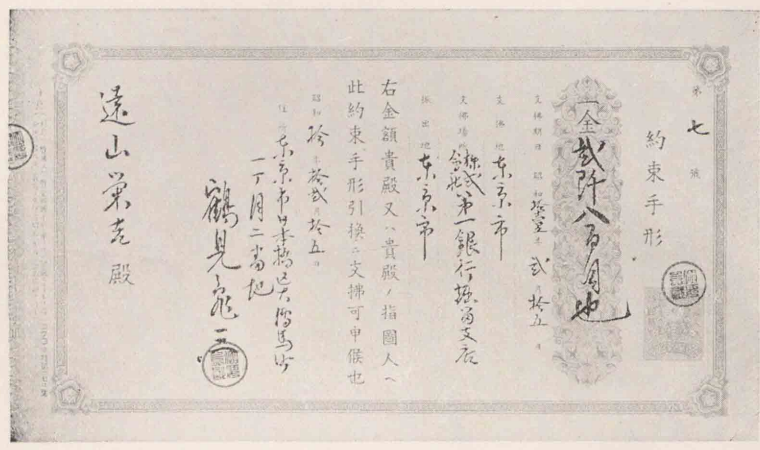 第七號
約束手形
一金貳阡八百円也
支拂期日 昭和拾壹年貳月拾五日
支拂地 東京市
支拂場所 株式會社第一銀行堀留支店
振出地 東京市
右金額貴殿又ハ貴殿ノ指圖人へ
此約束手形引換ニ支拂可申候也
昭和拾年拾貳月拾五日
住所 東京市日本橋区大傳馬町
一丁目二番地
鶴見
遠山榮吉殿